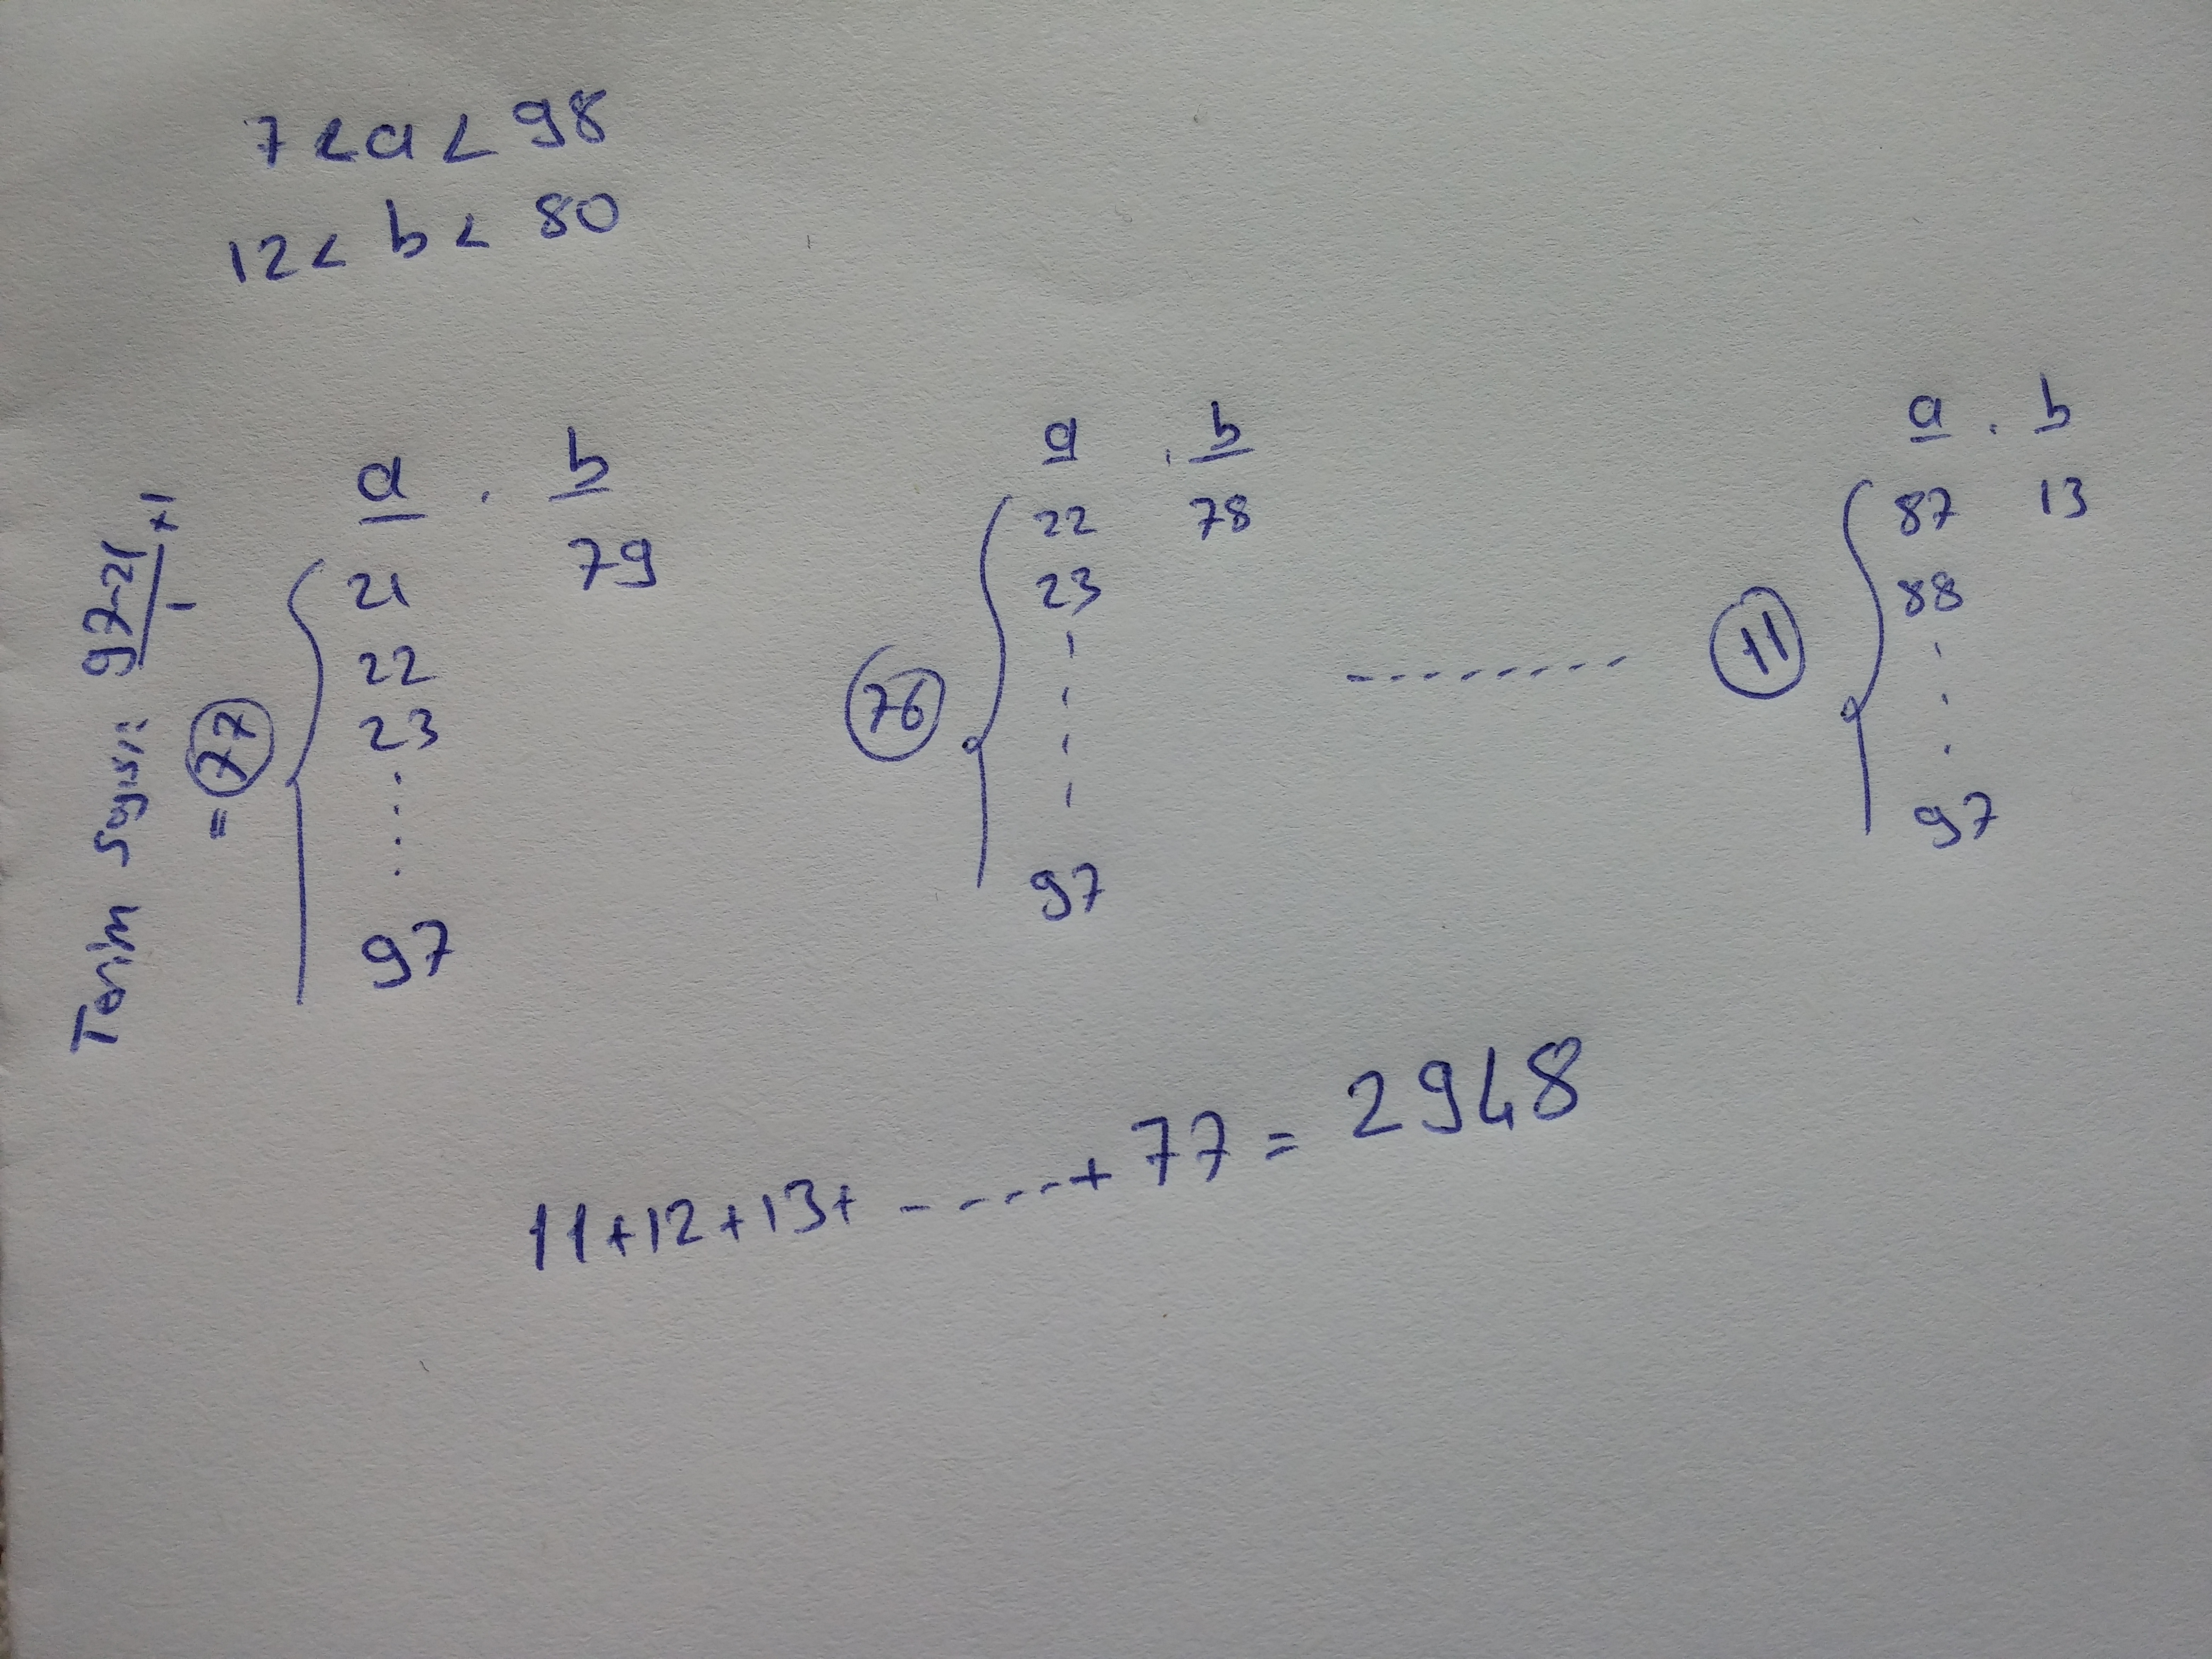 7 < a < 98
12 < b < 80
Terim Sayısı: 97-21/1 +1
= 77
a . b
21 79
22
23
97
76
a . b
22 78
23
97
11
a . b
87 13
88
97
11+12+13+ -----+ 77 = 2948